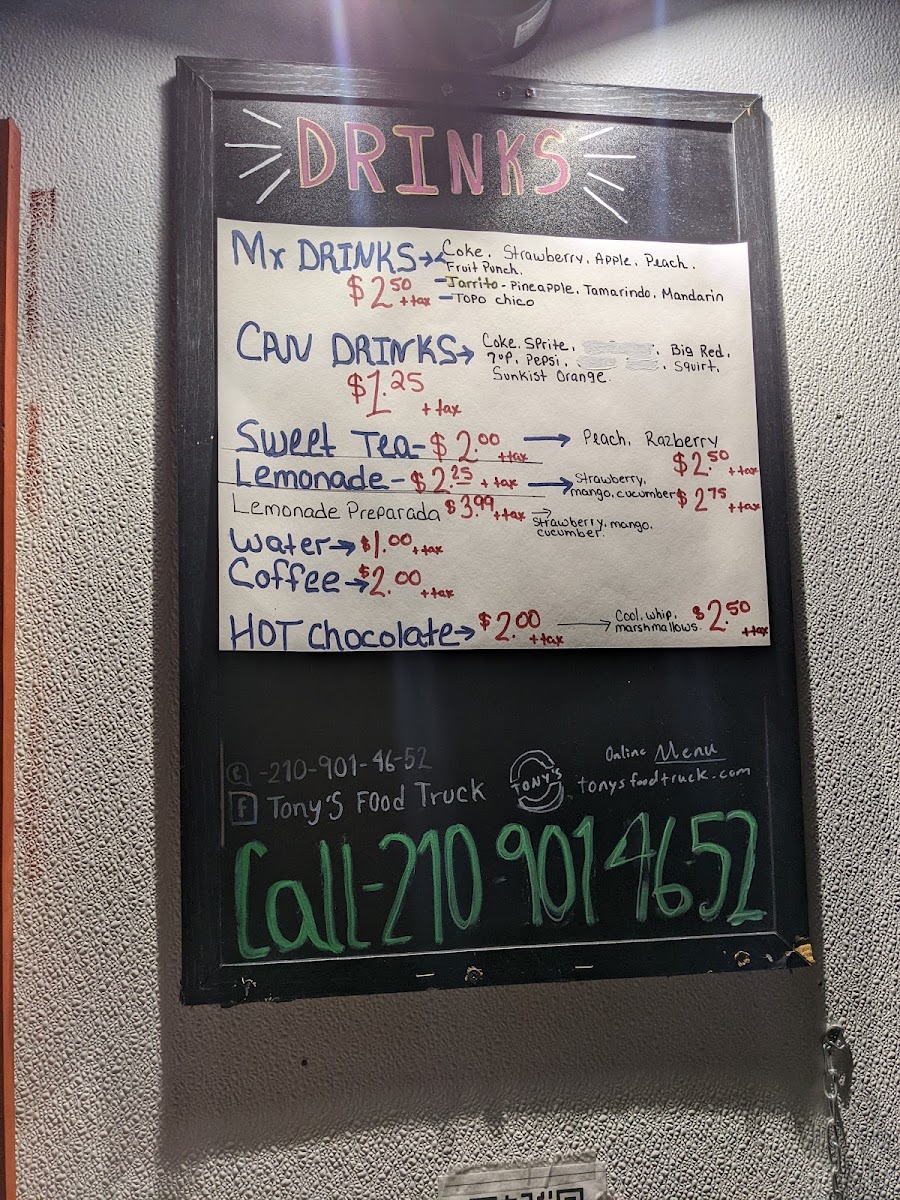 DRINKS
Mx DRINKS → Coke. Strawberry. Apple. Peach.
Fruit Punch.
$2.50 + tax - Jarrito - Pineapple. Tamarindo. Mandarin
- Topo chico
CAN DRINKS → Coke. Sprite. Big Red.
7up. Pepsi. Squirt.
Sunkist Orange.
$1.25 + tax
Sweet Tea - $2.00 + tax → Peach. Razberry
$2.50 + tax
Lemonade - $2.25 + tax → Strawberry.
mango, cucumber $2.75 + tax
Lemonade Preparada $3.99 + tax → Strawberry. mango.
cucumber.
Water → $1.00 + tax
Coffee → $2.00 + tax
HOT Chocolate → $2.00 + tax → Cool. whip.
marshmallows. $2.50 + tax
-210-901-46-52
f Tony'S Food Truck
TONY'S
Online Menu
tonysfoodtruck.com
Call-210 901 4652